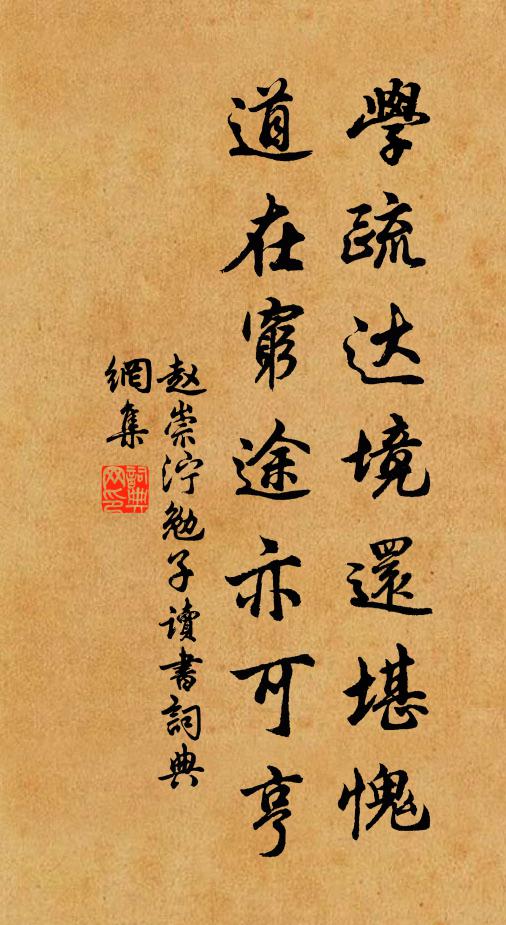 學疏达境還堪愧
道在窮途亦可亨
赵崇泞勉子讀書詞典
網集
詞典
网印